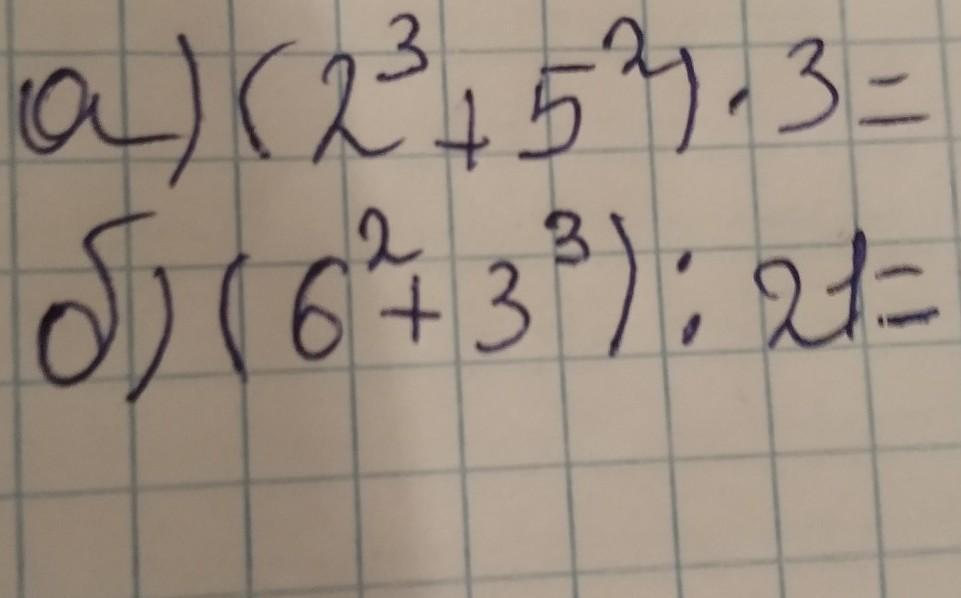 а) (2³ + 5²) · 3 =
б) (6² + 3³) : 21 =